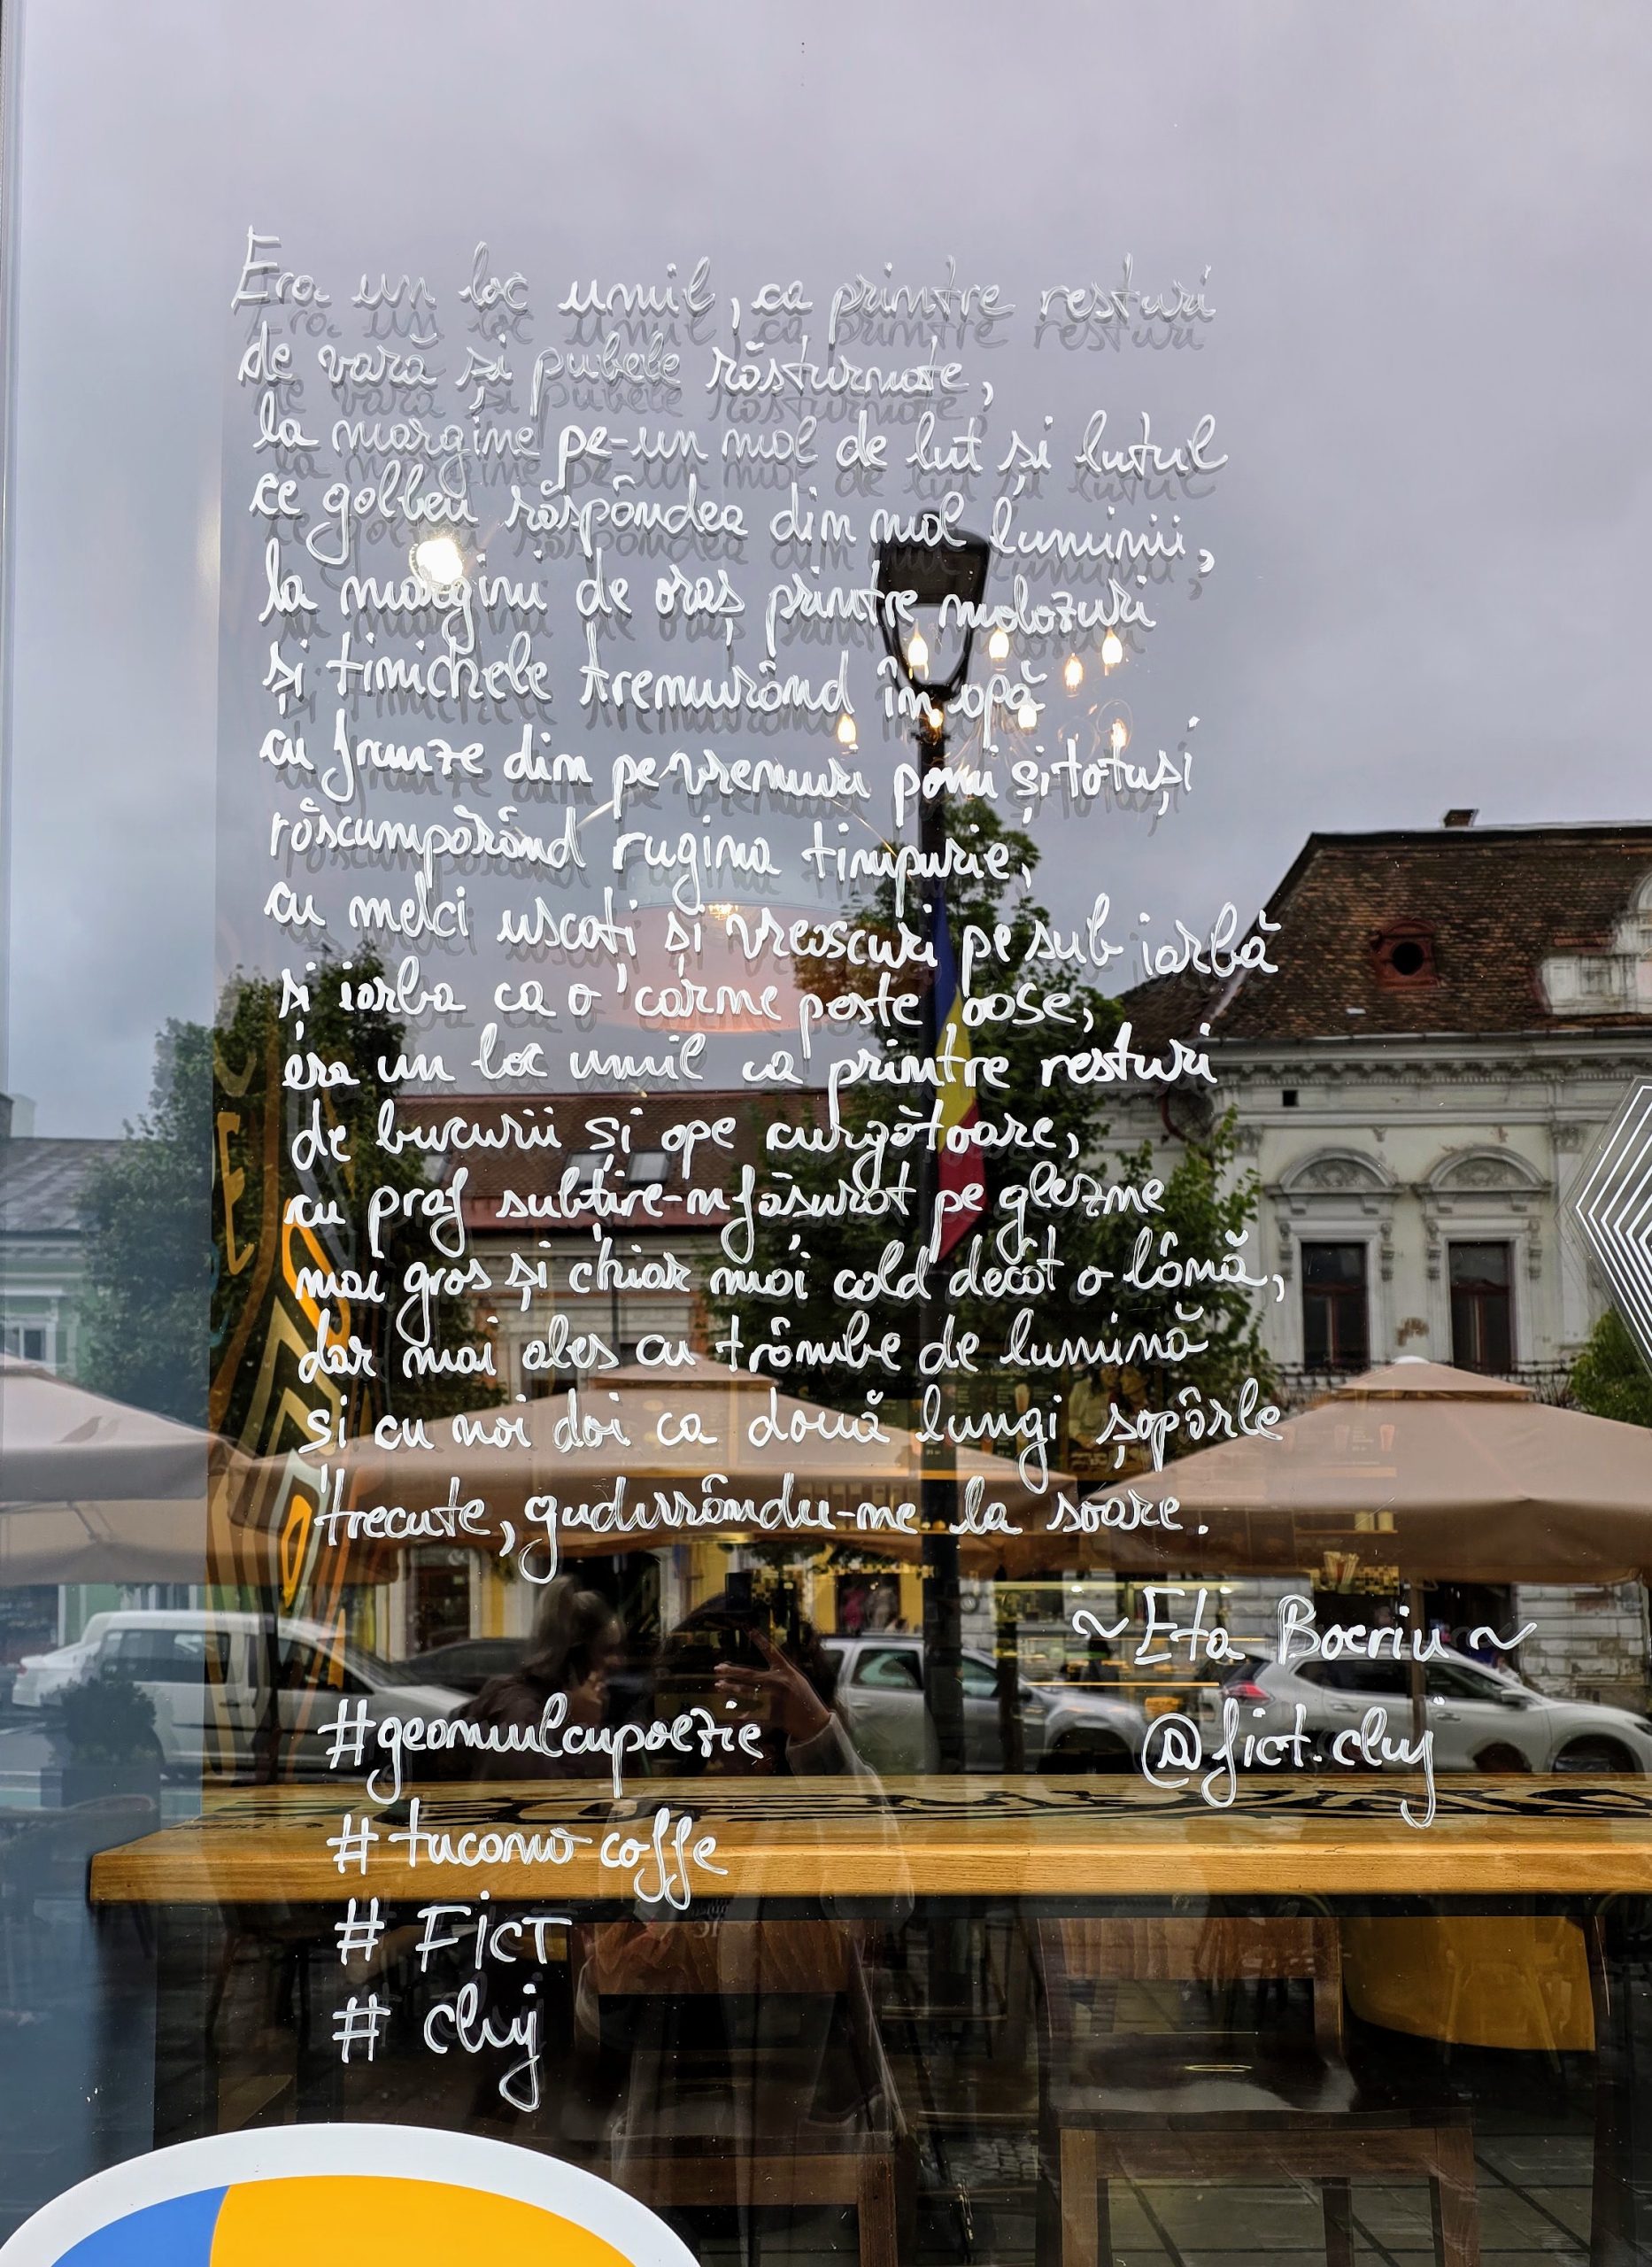 Era un loc umil, ca printre resturi
de vară și pubele răsturnate,
la margine pe-un mal de lut și lutul
ce galben răspândea din mal lumini,
la margini de oraș printre molozuri
și tinichele tremurând în apă
cu frunze din pe vremuri pomi și totuși
răscumpărând rugina timpurie,
cu melci uscați și vreascuri pe sub iarbă
și iarba ca o carne peste oase,
era un loc umil ca printre resturi
de bucurii și ape curgătoare,
cu praf subțire-nfășurat pe glezne
mai gros și chiar mai cald decât o lână,
dar mai ales cu trâmbe de lumină
si cu noi doi ca două lungi șopârle
trecute, gudurându-ne la soare.
~Eta Boeriu~
#geamulcupoezie
@fict.cluj
#tucanocoffe
# FICT
# cluj